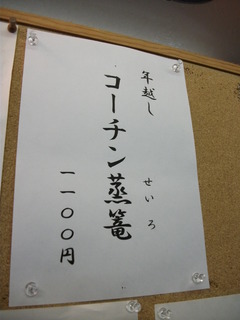 年越し
コーチン蒸篭
せいろ
一一〇〇円